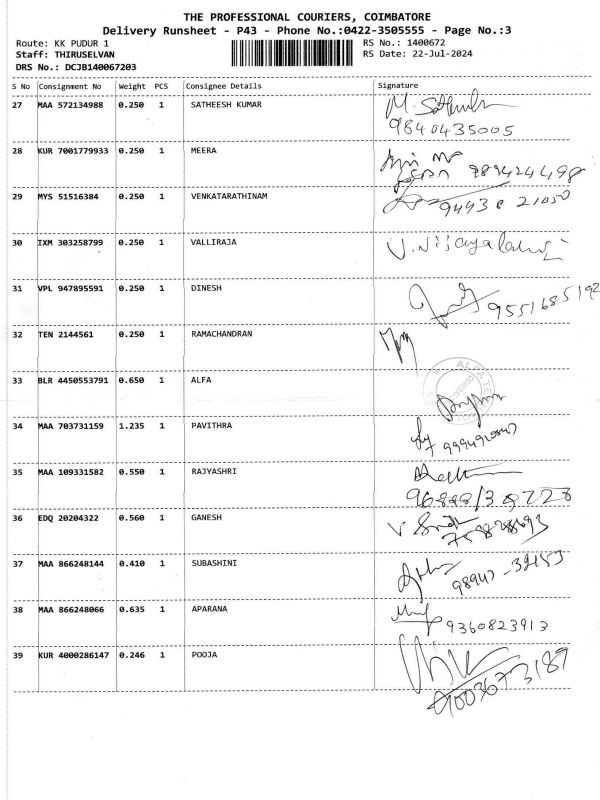 THE PROFESSIONAL COURIERS, COIMBATORE
Delivery Runsheet - P43 - Phone No.:0422-3505555 - Page No.:3
Route: KK PUDUR 1 RS No.: 1400672
Staff: THIRUSELVAN RS Date: 22-Jul-2024
DRS No.: DCJB140067203
S No Consignment No Weight PCS Consignee Details Signature
27 MAA 572134988 0.250 1 SATHEESH KUMAR
9840435005
28 KUR 7001779933 0.250 1 MEERA
9894244498
29 MYS 51516384 0.250 1 VENKATARATHINAM 94438 21050
30 IXM 303258799 0.250 1 VALLIRAJA
31 VPL 947895591 0.250 1 DINESH 9551685192
32 TEN 2144561 0.250 1 RAMACHANDRAN
33 BLR 4450553791 0.650 1 ALFA
34 MAA 703731159 1.235 1 PAVITHRA
35 MAA 109331582 0.550 1 RAJYASHRI
36 EDQ 20204322 0.560 1 GANESH
37 MAA 866248144 0.410 1 SUBASHINI
38 MAA 866248066 0.635 1 APARANA
9360823913
39 KUR 4000286147 0.246 1 POOJA